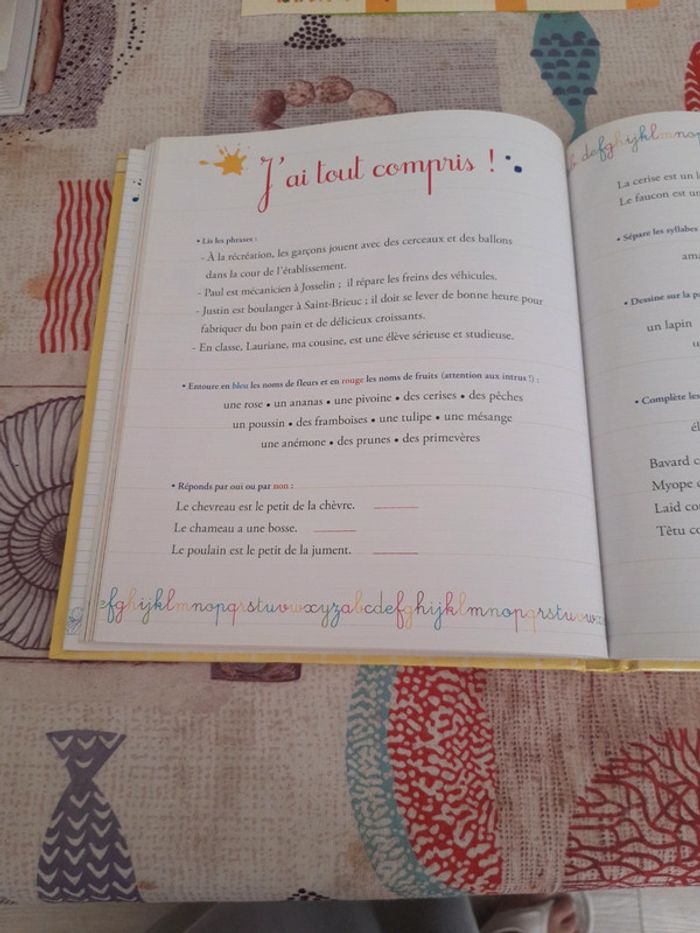 J'ai tout compris !
• Lis les phrases :
- À la récréation, les garçons jouent avec des cerceaux et des ballons
dans la cour de l'établissement.
- Paul est mécanicien à Josselin ; il répare les freins des véhicules.
- Justin est boulanger à Saint-Brieuc ; il doit se lever de bonne heure pour
fabriquer du bon pain et de délicieux croissants.
- En classe, Lauriane, ma cousine, est une élève sérieuse et studieuse.
• Entoure en bleu les noms de fleurs et en rouge les noms de fruits (attention aux intrus !) :
une rose • un ananas • une pivoine • des cerises • des pêches
un poussin • des framboises • une tulipe • une mésange
une anémone • des prunes • des primevères
• Réponds par oui ou par non :
Le chevreau est le petit de la chèvre.
Le chameau a une bosse.
Le poulain est le petit de la jument.
efghijklmnopqrstuvwxyzabcdefghijklmnopqrstuvwx
b defghijklmnop
La cerise est un
Le faucon est un
• Sépare les syllabes
• Dessine sur la
un lapin
• Complète les
Bavard
Myope
Laid
Têtu